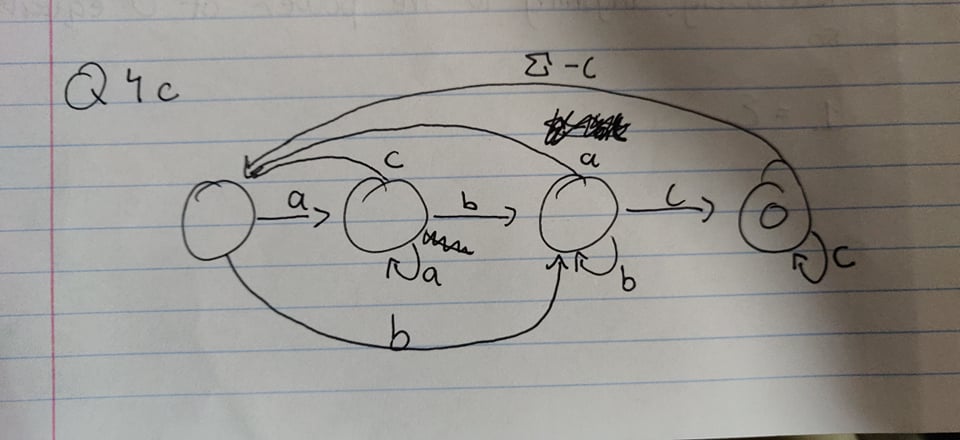 Q4c
Σ-c
c
a
a
b
c
a
b
c
b